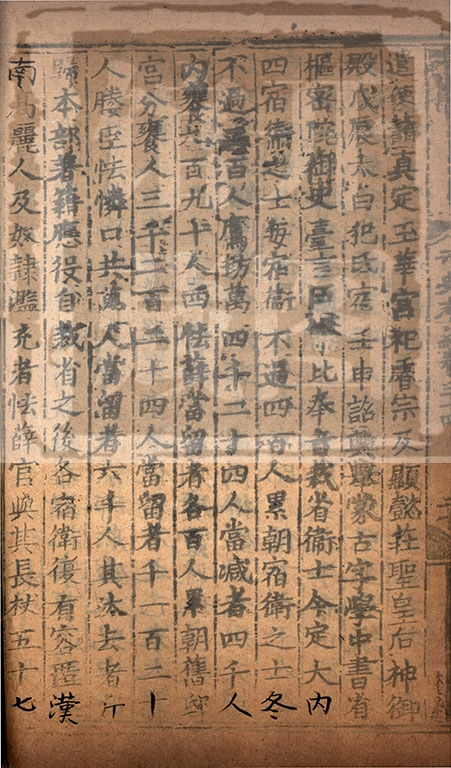 遣使詣真定玉華宮祀睿宗及顯懿莊聖皇后神御
殿戊辰太白犯氐宿壬申詔興舉蒙古字學中書省
樞密院御史臺言臣等比奉旨裁省衛士今定大內
四宿衛之士每宿衛不過四百人累朝宿衛之士冬
不過二百人鷹坊萬四千二十四人當減者四千人
內饔九百九十人四怯薛當留者各百人累朝舊邸
宮分饔人三千二百二十四人當留者千一百二十
人媵臣怯憐口共萬人當留者六千人其汰去者斤
歸本部著籍應役自裁省之後各宿衛復有容匿漢
南高麗人及奴隸濫充者怯薛官與其長杖五十七